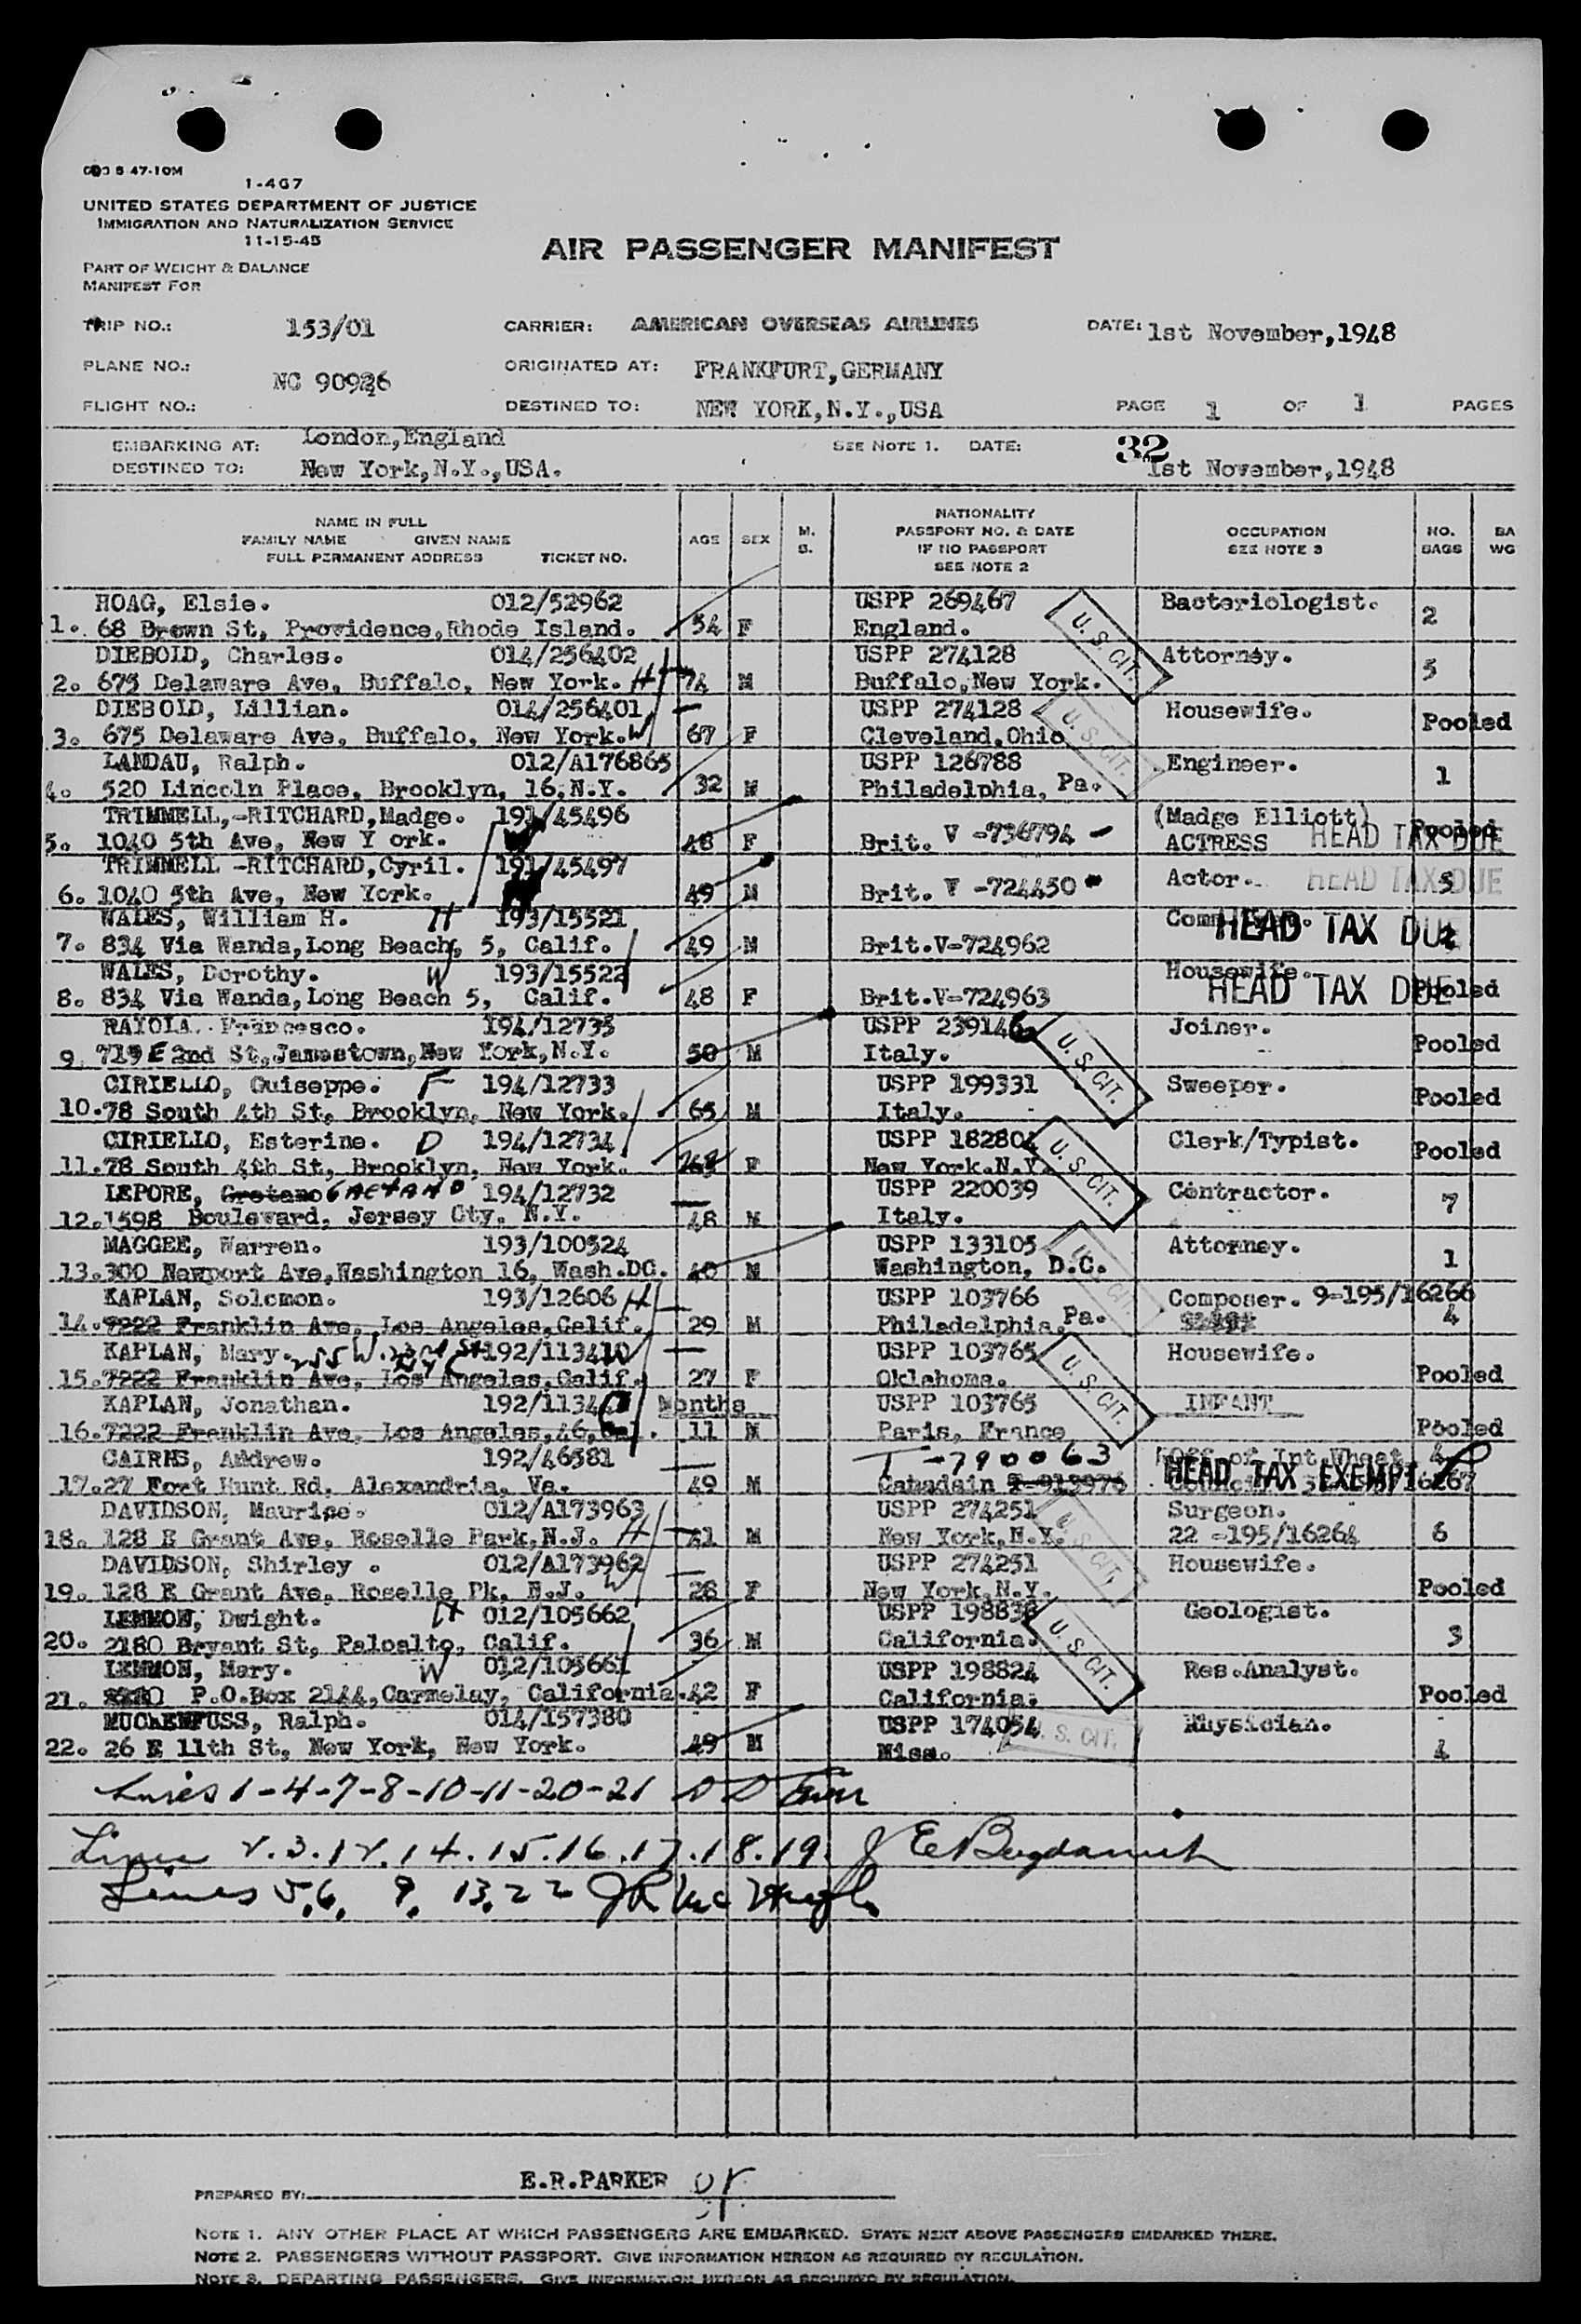 1-467
UNITED STATES DEPARTMENT OF JUSTICE
IMMIGRATION AND NATURALIZATION SERVICE
11-15-45
AIR PASSENGER MANIFEST
PART OF WEIGHT & BALANCE
MANIFEST FOR
TRIP NO.: 153/01 CARRIER: AMERICAN OVERSEAS AIRLINES DATE: 1st November,1948
PLANE NO.: NC 90926 ORIGINATED AT: FRANKFURT,GERMANY
FLIGHT NO.: DESTINED TO: NEW YORK,N.Y.,USA PAGE 1 OF 1 PAGES
EMBARKING AT: London,England SEE NOTE 1. DATE: 32
DESTINED TO: New York,N.Y.,USA. 1st November,1948
NAME IN FULL
FAMILY NAME GIVEN NAME
FULL PERMANENT ADDRESS TICKET NO.
AGE SEX M. S.
NATIONALITY
PASSPORT NO. & DATE
IF NO PASSPORT
SEE NOTE 2
OCCUPATION
SEE NOTE 3
NO. BAGS
BA WG
HOAG, Elsie. 012/52962 USPP 269467 Bacteriologist.
1. 68 Brown St, Providence,Rhode Island. 54 F England. 2
U. S. CIT.
DIEBOLD, Charles. 014/256402 USPP 274128 Attorney.
2. 675 Delaware Ave, Buffalo, New York. H 74 M Buffalo,New York. 5
DIEBOLD, Lillian. 014/256401 USPP 274128 Housewife.
3. 675 Delaware Ave, Buffalo, New York. W 67 F Cleveland,Ohio Pooled
U. S. CIT.
LANDAU, Ralph. 012/A176865 USPP 126788 Engineer.
4. 520 Lincoln Place, Brooklyn, 16,N.Y. 32 M Philadelphia, Pa. 1
TRIMMELL,-RITCHARD,Madge. 191/45496 (Madge Elliott)
5. 1040 5th Ave, New Y ork. 48 F Brit. V -736794 ACTRESS HEAD TAX DUE Pooled
TRIMMELL -RITCHARD,Cyril. 191/45497
6. 1040 5th Ave, New York. 49 M Brit. V -724450 Actor. HEAD TAX DUE 5
WALES, William H. H 193/15521
7. 834 Via Wanda,Long Beach, 5, Calif. 49 M Brit.V-724962 HEAD TAX DUE
WALES, Dorothy. W 193/15522 Housewife.
8. 834 Via Wanda,Long Beach 5, Calif. 48 F Brit.V-724963 HEAD TAX DUE Pooled
Francesco. 194/12735 USPP 239146 Joiner.
9. 719 E 2nd St,Jamestown,New York,N.Y. 50 M Italy. Pooled
U. S. CIT.
CIRIELLO, Guiseppe. F 194/12733 USPP 199331 Sweeper.
10. 78 South 4th St, Brooklyn, New York. 65 M Italy. Pooled
CIRIELLO, Esterine. D 194/12734 USPP 182804 Clerk/Typist.
11. 78 South 4th St, Brooklyn, New York. F New York.N.Y. Pooled
U. S. CIT.
LEPORE, Gretano GAETANO 194/12732 USPP 220039 Contractor.
12. 1598 Boulevard, Jersey Cty. N.Y. 48 M Italy. 7
MAGGEE, Warren. 193/100524 USPP 133105 Attorney.
13. 300 Newport Ave,Washington 16, Wash.DC. 40 M Washington, D.C. 1
U. S. CIT.
KAPLAN, Solomon. 193/12606 H USPP 103766 Composer. 9-195/16266
14. 7222 Franklin Ave, Los Angeles,Calif. 29 M Philadelphia, Pa. 4
KAPLAN, Mary. 192/113410 W USPP 103765 Housewife.
15. 7222 Franklin Ave, Los Angeles,Calif. 27 F Oklahoma. Pooled
U. S. CIT.
KAPLAN, Jonathan. Months USPP 103765 INFANT
16. 7222 Franklin Ave, Los Angeles,46, 11 M Paris, France Pooled
CAIRNS, Andrew. 192/46581 T-790063 Off.of Int.Wheat 4
17. 27 Fort Hunt Rd, Alexandria, Va. 49 M Canadain T-913976 HEAD TAX EXEMPT
DAVIDSON, Maurice. 012/A173963 USPP 274251 Surgeon.
18. 128 E Grant Ave, Roselle Park,N.J. H M New York,N.Y. 22 -195/16264 6
U. S. CIT.
DAVIDSON, Shirley . 012/A173962 USPP 274251 Housewife.
19. 128 E Grant Ave, Roselle Pk, N.J. W 28 F New York,N.Y. Pooled
LEMMON, Dwight. H 012/105662 USPP 198838 Geologist.
20. 2180 Bryant St, Paloalto, Calif. 36 M California. 3
U. S. CIT.
LEMMON, Mary. W 012/105661 USPP 198824 Res.Analyst.
21. P.O.Box 2144,Carmelay, California. 42 F California. Pooled
MUCKENFUSS, Ralph. 014/157380 USPP 174054 Physician.
22. 26 E 11th St, New York, New York. 49 M Miss. 4
U. S. CIT.
Lines 1-4-7-8-10-11-20-21
Lines 2.3.12.14.15.16.17.18.19.
Lines 5,6, 9, 13,22
PREPARED BY: E.R.PARKER
NOTE 1. ANY OTHER PLACE AT WHICH PASSENGERS ARE EMBARKED. STATE NEXT ABOVE PASSENGERS EMBARKED THERE.
NOTE 2. PASSENGERS WITHOUT PASSPORT. GIVE INFORMATION HEREON AS REQUIRED BY REGULATION.
NOTE 3. DEPARTING PASSENGERS. GIVE INFORMATION HEREON AS REQUIRED BY REGULATION.